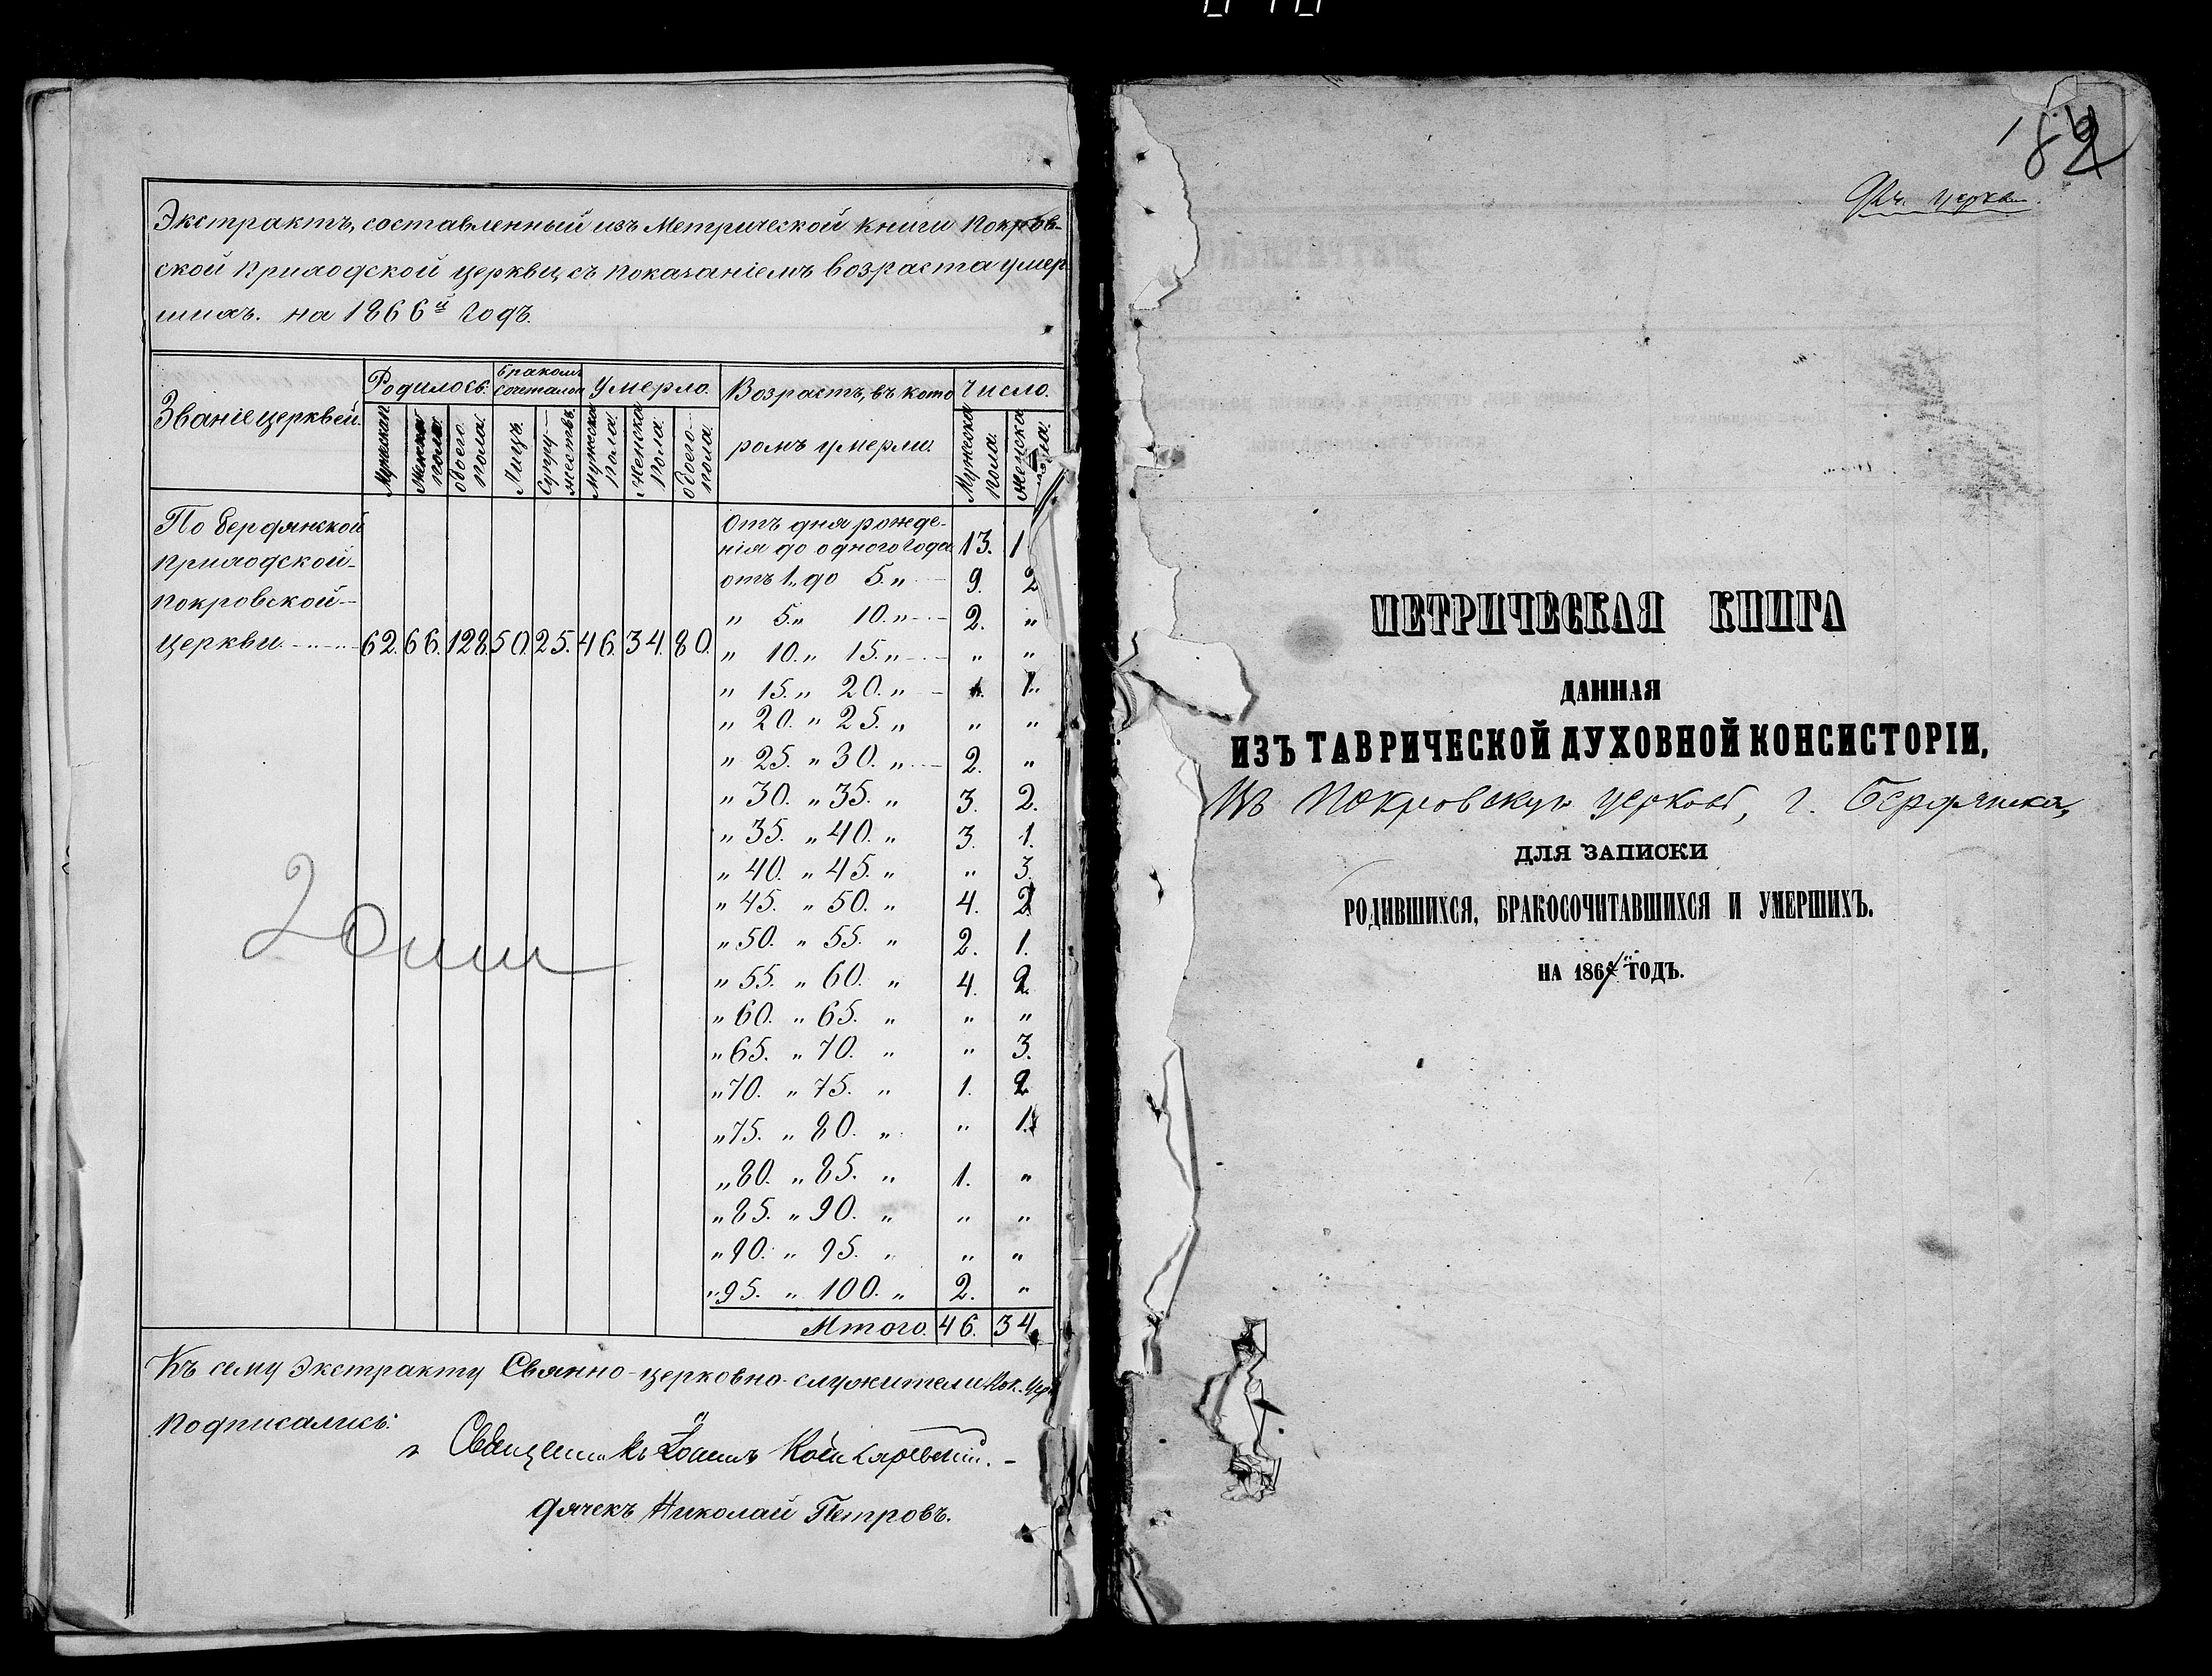 Экстрактъ, составленный изъ Метрической Книги Покров-
ской Приходской церкви, съ показаніемъ возраста умер
шихъ. на 1866й годъ.
Званіе церквей.
Родилось.
Бракомъ
Сочетал
Умерло.
Возрастъ, въ кото
ромъ умерли.
Число.
Мужескап
Женска
пола.
обоего.
пола.
Лицъ.
Супру-
жествъ.
Мужеска
Пола.
Женска
Пола.
Обоего
пола.
Мужеска
пола.
Женска
пола.
По Бердянской
Приходской-
Покровской-
Церкви 62. 66. 128. 50. 25. 46. 34. 80.
Отъ дня рожде-
нія до одного года 13. 1
отъ 1. до 5. „ 9. 2
„ 5. „ 10. „ 2. „
„ 10. „ 15. „ „ „
„ 15. „ 20. „ „ 1.
„ 20. „ 25. „ „ „
„ 25. „ 30. „ 2. „
„ 30. „ 35. „ 3. 2.
„ 35. „ 40. „ 3. 1.
„ 40. „ 45. „ „ 3.
„ 45. „ 50. „ 4. 2
„ 50. „ 55. „ 2. 1.
„ 55. „ 60. „ 4. 2.
„ 60. „ 65. „ „ „
„ 65. „ 70. „ „ 3.
„ 70. „ 75. „ 1. 2
„ 75. „ 80. „ „ 1.
„ 80. „ 85. „ 1. „
„ 85. „ 90. „ „ „
„ 90. „ 95. „ „ „
„ 95. „ 100. „ 2. „
Итого. 46. 34
Къ сему Экстракту Свянно-церковно-служители Пок. Церк
Подписались:
Священникъ Іоаннъ
Дячекъ Николай Петровъ.
церкви.
МЕТРИЧЕСКАЯ КНИГА
ДАННАЯ
ИЗЪ ТАВРИЧЕСКОЙ ДУХОВНОЙ КОНСИСТОРІИ,
Въ Покровскую церковь, г. Бердянска,
ДЛЯ ЗАПИСКИ
РОДИВШИХСЯ, БРАКОСОЧИТАВШИХСЯ И УМЕРШИХЪ.
НА 1867 ГОДЪ.